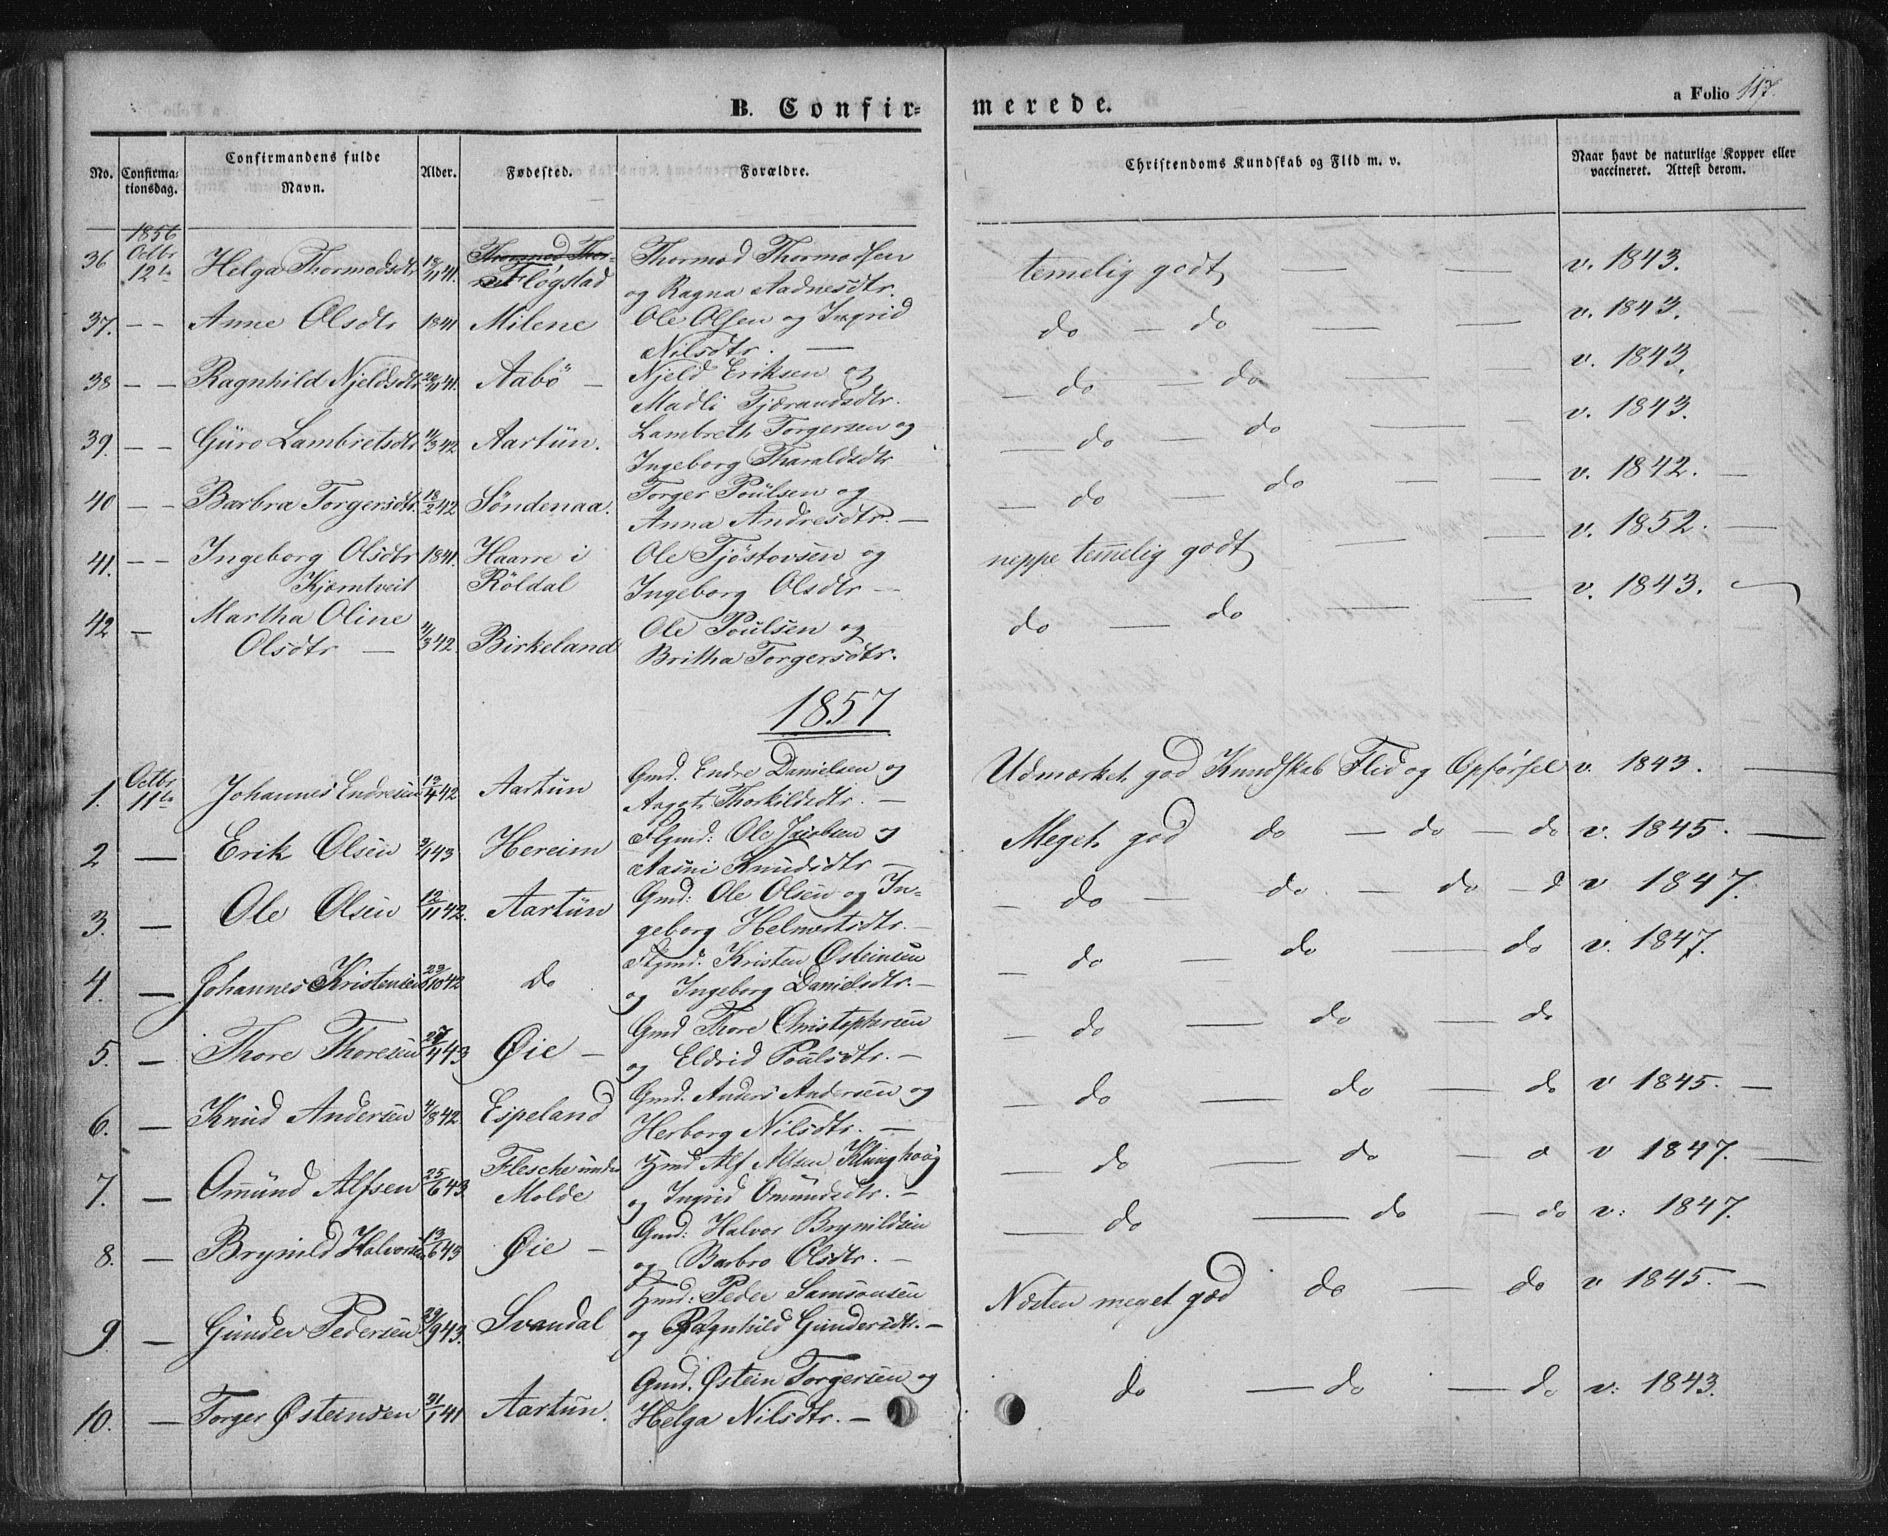 B. Confirmerede.
a Folio 117.
No. Confirmationsdag. Confirmandens fulde Navn. Alder. Fødested. Forældre. Christendoms Kundskab og Flid m. v. Naar havt de naturlige Kopper eller vaccineret. Attest derom.
1856
36 Octbr 12te Helga Thormodsdtr 18/11 41. Thormod Thor- Fløgstad Thormod Thormodsen temelig godt — — v. 1843.
og Ragna Aadnesdtr.
37. — — Anne Olsdtr 1841 Milene Ole Olsen og Ingrid do — do — — v. 1843.
Nilsdtr. —
38 — — Ragnhild Njeldsdtr 20/11 41. Aabö — Njeld Eriksen og — do — do — — v. 1843.
Madli Tjerandsdtr.
39. — — Guro Lambretsdtr 11/3 42 Aartün. Lambreth Torgersen og — do — do — — v. 1843.
Ingeborg Tharaldsdtr
40 — — Barbra Torgersdtr. 18/2 42 Söndenaa. Torger Poülsen og — do — do — — v. 1842. —
Anna Andresdtr. —
41. — — Ingeborg Olsdtr 1841. Haarre i Ole Tjöstovsen og neppe temelig godt — — v. 1852. —
Kjerntveit Röldal Ingeborg Olsdtr —
42 — Martha Oline 11/3 42. Birkeland Ole Poülsen og do — do — — v. 1843. —
Olsdtr — Britha Torgersdtr.
1857
1. Octbr 11te Johannes Endresen 19/4 42 Aartün Gmd. Endre Danielsen og Udmærket god Kundskab Flid og Opførsel v. 1843. —
Aagot Thorkildsdtr. —
2 — Erik Olsen 3/1 43 Hereim Flgmd: Ole Jacobsen og Meget god do — do — do v. 1845. —
Aasni Knudsdtr —
3. — Ole Olsen 12/11 42. Aartün Gmd: Ole Olsen og In- — do — do — do — d v 1847.
geborg Helmertsdtr. —
4. — Johannes Kristensen 29/10 42 do Flgmd. Kristen Østeinsen — do — do — do v. 1847.
og Ingeborg Danielsdtr. —
5. — Thore Thoresen 27/4 43 Øie — Gmd Thore Christophersen — do — do — do
og Eldrid Poülsdtr. —
6. — Knud Andersen 4/8 42. Espeland Gmd. Anders Andersen og — do — do — do v 1845. —
Herborg Nilsdtr. —
7. — Omünd Alfsen 25/6 43. Flesche under Hmd Alf Alfsen Klunghoug — do — do — d v 1847. —
Molde og Ingrid Omündsdtr. —
8. — Brynild Halvorsen 13/6 43 Øie — Gmd: Halvor Brynildsen — do — do — do v: 1847.
og Barbro Olsdtr. —
9 — Gunder Pedersen 29/9 43. Svandal Hmd: Peder Samsonsen Næsten meget god do — do v 1845. —
og Ragnhild Gundersdtr. —
10. — Torger Østeinsen 31/1 41 Aartün. Gmd. Østein Torgersen og do — do — do v: 1843.
Helga Nilsdtr. —